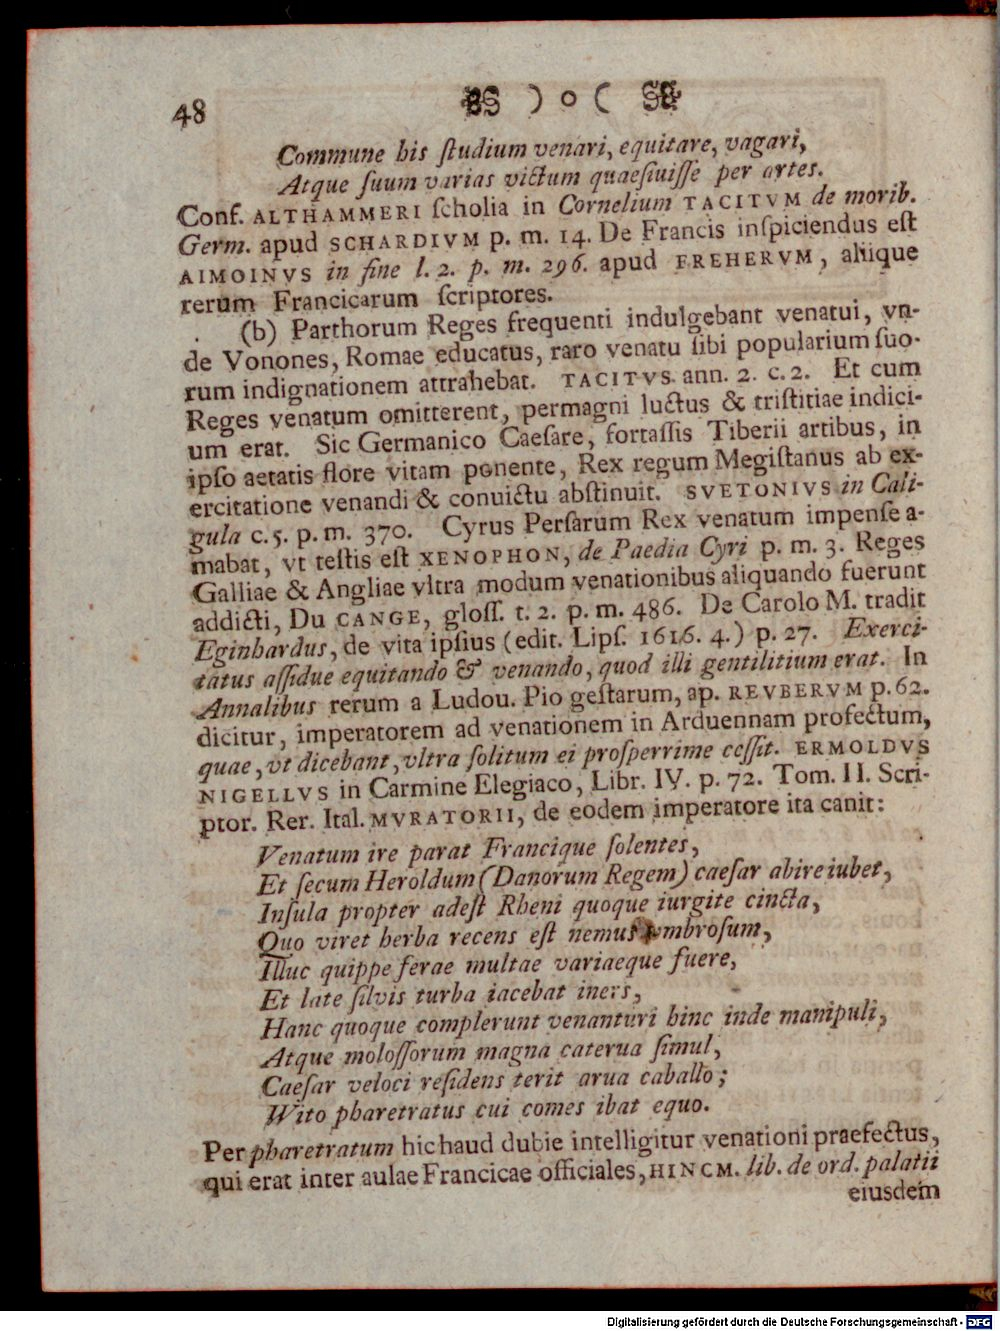 48 ) o (
Commune his ſtudium venari, equitare, vagari,
Atque ſuum varias victum quaeſiuiſſe per artes.
Conf. ALTHAMMERI ſcholia in Cornelium TACITVM de morib.
Germ. apud SCHARDIVM p. m. 14. De Francis inſpiciendus eſt
AIMOINVS in fine l. 2. p. m. 296. apud FREHERVM, aliique
rerum Francicarum ſcriptores.
(b) Parthorum Reges frequenti indulgebant venatui, vn-
de Vonones, Romae educatus, raro venatu ſibi popularium ſuo-
rum indignationem attrahebat. TACITVS. ann. 2. c. 2. Et cum
Reges venatum omitterent, permagni luctus & triſtitiae indici-
um erat. Sic Germanico Caeſare, fortaſſis Tiberii artibus, in
ipſo aetatis flore vitam ponente, Rex regum Megiſtanus ab ex-
ercitatione venandi & conuictu abſtinuit. SVETONIVS in Cali-
gula c. 5. p. m. 370. Cyrus Perſarum Rex venatum impenſe a-
mabat, vt teſtis eſt XENOPHON, de Paedia Cyri p. m. 3. Reges
Galliae & Angliae vltra modum venationibus aliquando fuerunt
addicti, Du CANGE, gloſſ. t. 2. p. m. 486. De Carolo M. tradit
Eginhardus, de vita ipſius (edit. Lipſ. 1616. 4.) p. 27. Exerci-
tatus aſſidue equitando & venando, quod illi gentilitium erat. In
Annalibus rerum a Ludou. Pio geſtarum, ap. REVBERVM p. 62.
dicitur, imperatorem ad venationem in Arduennam profectum,
quae, vt dicebant, vltra ſolitum ei proſperrime ceſſit. ERMOLDVS
NIGELLVS in Carmine Elegiaco, Libr. IV. p. 72. Tom. II. Scri-
ptor. Rer. Ital. MVRATORII, de eodem imperatore ita canit:
Venatum ire parat Francique ſolentes,
Et ſecum Heroldum (Danorum Regem) caeſar abire iubet,
Inſula propter adeſt Rheni quoque iurgite cincta,
Quo viret herba recens eſt nemus vmbroſum,
Illuc quippe ferae multae variaeque fuere,
Et late ſilvis turba iacebat iners,
Hanc quoque complerunt venanturi hinc inde manipuli,
Atque moloſſorum magna caterua ſimul,
Caeſar veloci reſidens terit arua caballo;
Wito pharetratus cui comes ibat equo.
Per pharetratum hic haud dubie intelligitur venationi praefectus,
qui erat inter aulae Francicae officiales, HINCM. lib. de ord. palatii
eiusdem
Digitalisierung gefördert durch die Deutsche Forschungsgemeinschaft - DFG